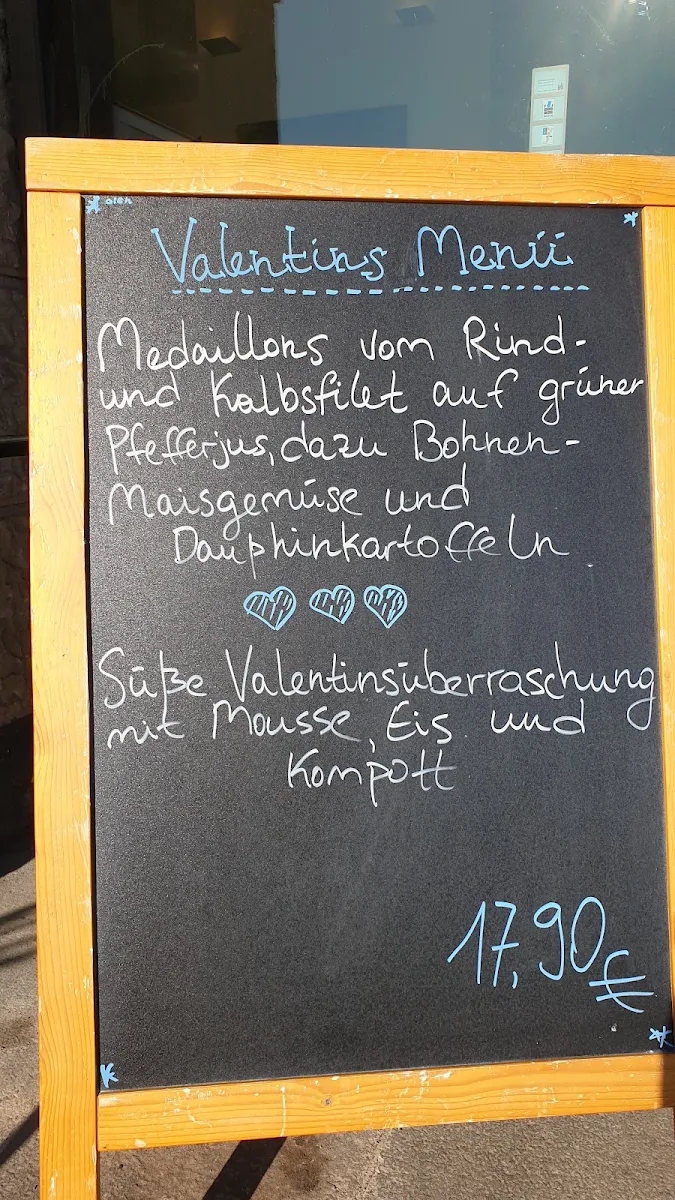 Valentins Menü
Medaillons vom Rind-
und Kalbsfilet auf grüner
Pfefferjus, dazu Bohnen-
Maisgemüse und
Dauphinkartoffeln
Süße Valentinsüberraschung
mit Mousse, Eis und
Kompott
17,90€